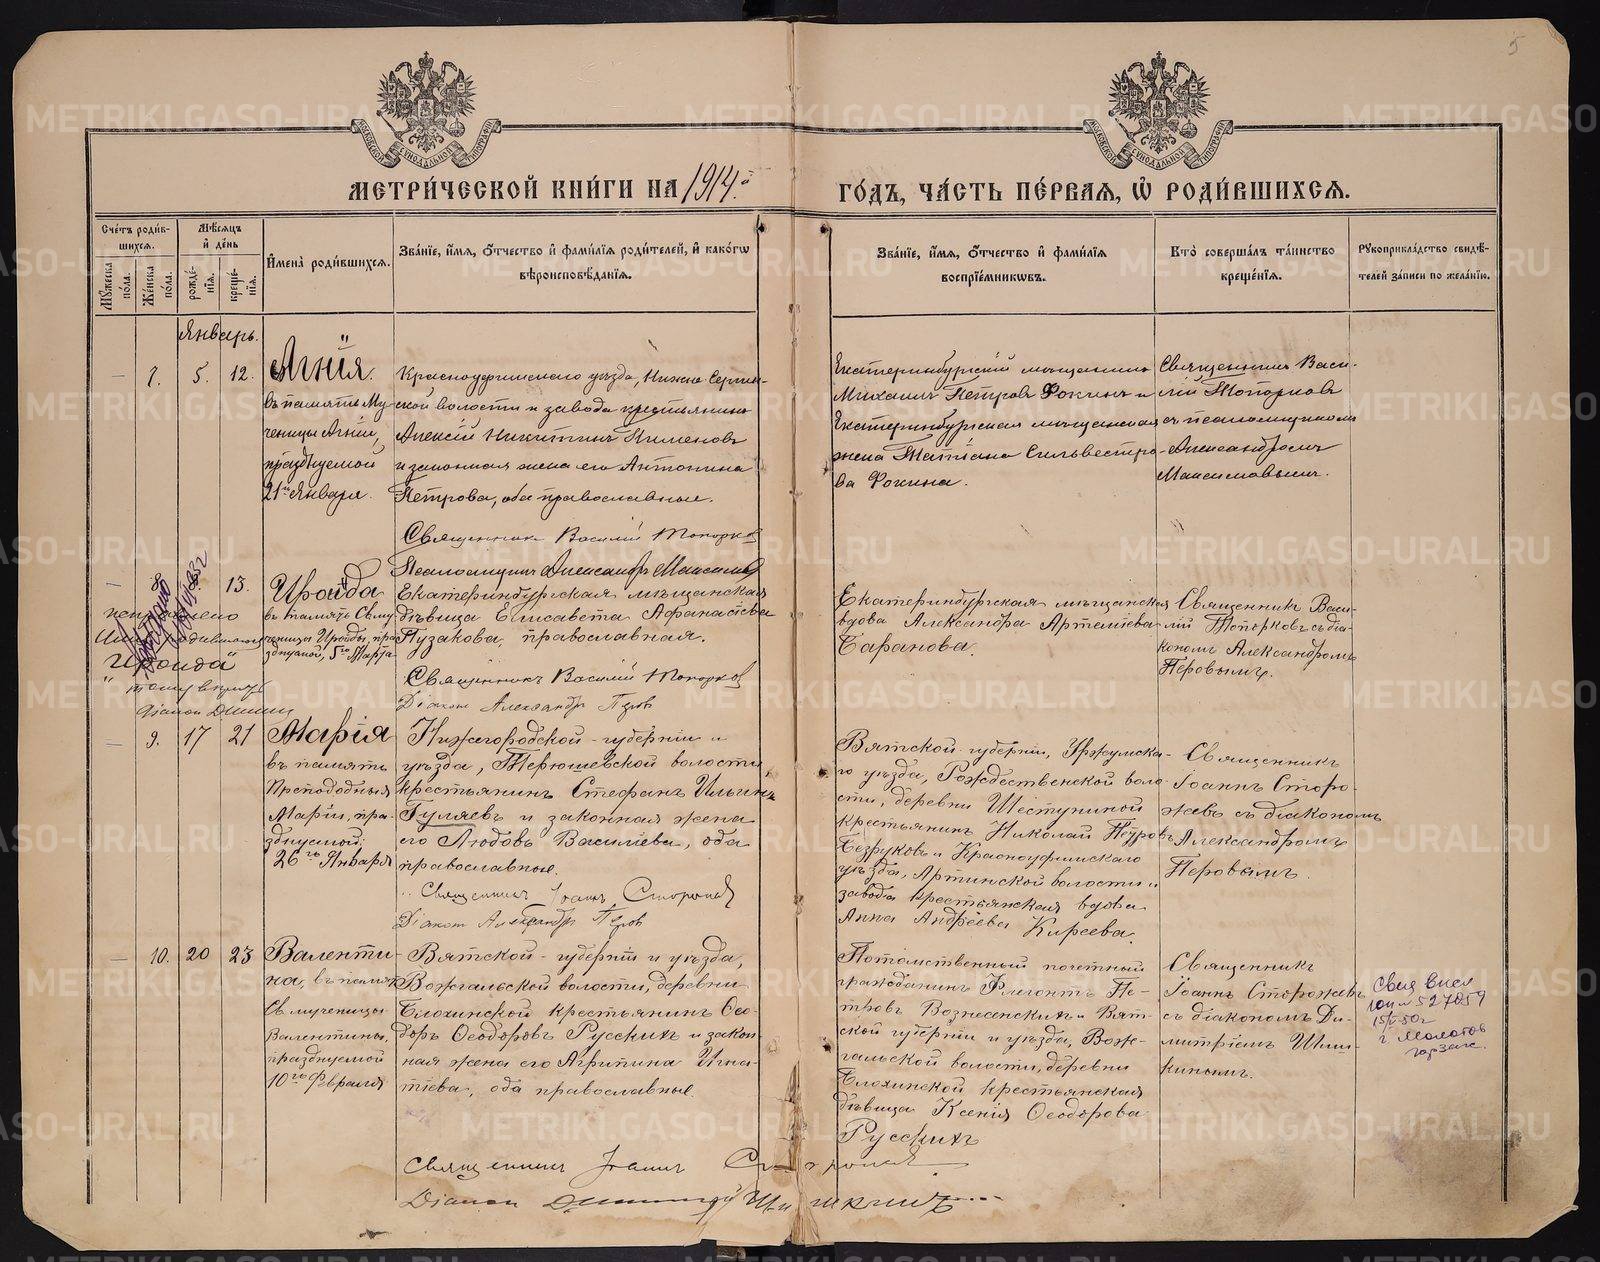 5
МОСКОВСКОЙ СУНОДАЛЬНОЙ ТИПОГРАФІИ
МОСКОВСКОЙ СУНОДАЛЬНОЙ ТИПОГРАФІИ
МЕТРИ́ЧЕСКОЙ КНИ́ГИ НА 1914.й
ГО́ДЪ, ЧА́СТЬ ПЕ́РВАЯ, Ѡ҆ РОДИ́ВШИХСѦ.
Сче́тъ роди́в-
шихсѧ.
Мѹ́жеска по́ла.
Же́нска по́ла.
Мѣ́сѧцъ
и҆ де́нь
рожде́нїѧ.
креще́нїѧ.
И҆мена̀ роди́вшихсѧ.
Зва́нїе, и҆́мѧ, ѻ҆́тчество и҆ фами́лїѧ роди́телей, и҆ како́гѡ
вѣроисповѣ́данїѧ.
Зва́нїе, и҆́мѧ, ѻ҆́тчество и҆ фами́лїѧ
воспрїе́мникѡвъ.
Кто̀ соверша́лъ та́инство
креще́нїѧ.
Рꙋкоприкла́дство свидѣ́-
телей за́писи по жела́нїю.
Январь.
7. 5. 12.
Агнія.
въ память Му-
ченицы Агніи,
празднуемой
21го Января.
Красноуфимскаго уѣзда, Нижне Сергин-
ской волости и завода крестьянинъ
Алексій Никитинъ Пименовъ
и законная жена его Антонина
Петрова, оба православные.
Священникъ Василій Топорков
Псаломщикъ Александръ Максимов
Екатеринбургскій мѣщанинъ
Михаилъ Петровъ Фокинъ и
Екатеринбургская мѣщанская
жена Татіана Сильвестро-
ва Фокина.
Священникъ Васи-
лій Топорковъ
съ псаломщикомъ
Александромъ
Максимовымъ.
8. 13.
Ироида
въ память Св. му-
ченицы Ироиды, пра-
зднуемой 5го Марта
Исправлено
"Ироида"
Діакон
Екатеринбургская мѣщанская
дѣвица Елисавета Афанасіева
Пузакова, православная.
Священникъ Василій Топорков
Діаконъ Александръ Перов
Екатеринбургская мѣщанская
вдова Александра Артеміева
Баранова.
Священникъ Васи-
лій Топорковъ съ діа-
кономъ Александромъ
Перовымъ.
9. 17 21
Марія
въ память
Преподобныя
Маріи, пра-
зднуемой
26го Января
Нижегородской губерніи и
уѣзда, Терюшевской волости,
крестьянинъ Стефанъ Ильинъ
Гуляевъ и законная жена
его Любовь Василіева, оба
православные.
Священникъ Іоаннъ Сторожев
Діаконъ Александръ Перов
Вятской губерніи, Уржумска-
го уѣзда, Рождественской воло-
сти, деревни Шеступиной
крестьянинъ Николай Петровъ
Безруковъ и Красноуфимскаго
уѣзда, Артинской волости и
завода крестьянская вдова
Анна Андреева Киреева.
Священникъ
Іоаннъ Сторо-
жевъ съ діакономъ
Александромъ
Перовымъ.
10. 20 23
Валенти-
на, въ память
Св. мученицы
Валентины,
празднуемой
10го Февраля
Вятской губерніи и уѣзда,
Вожгальской волости, деревни
Блохинской крестьянинъ Ѳео-
доръ Ѳеодоровъ Русскихъ и закон-
ная жена его Агрипина Игна-
тіева, оба православные.
Священникъ Іоаннъ Сторожев
Діаконъ Димитрій Шишкинъ
Потомственный почетный
гражданинъ Флегонтъ Пе-
тровъ Вознесенскихъ и Вят-
ской губерніи и уѣзда, Вож-
гальской волости, деревни
Блохинской крестьянская
дѣвица Ксенія Ѳеодорова
Русскихъ
Священникъ
Іоаннъ Сторожевъ
съ діакономъ Ди-
митріемъ Шиш-
кинымъ.
№ 527057
15/V-50г
г Молотов
METRIKI.GASO-URAL.RU